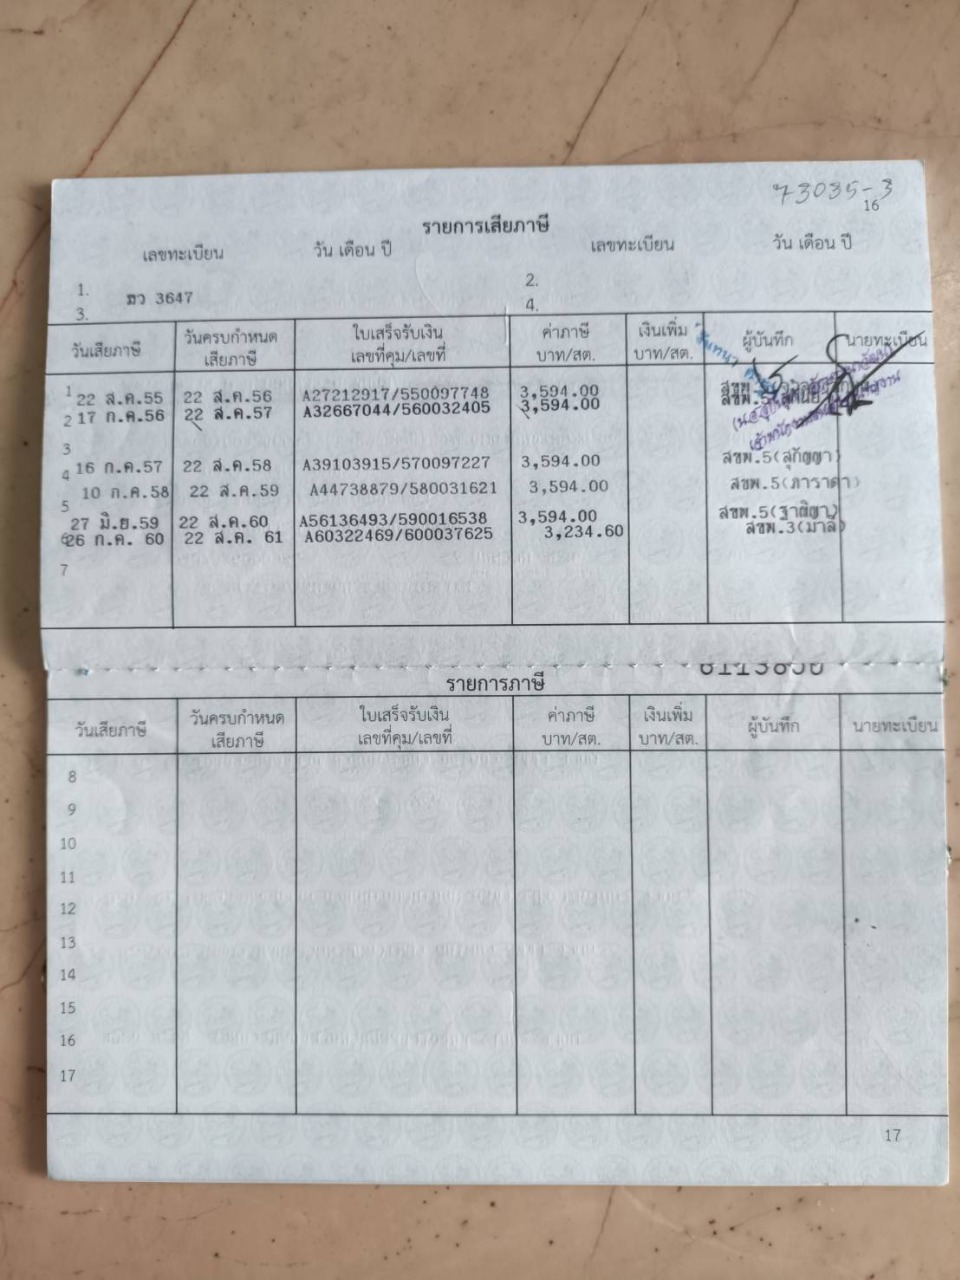 73035-3
16
รายการเสียภาษี
เลขทะเบียน วัน เดือน ปี เลขทะเบียน วัน เดือน ปี
1. ฆว 3647 2.
3. 4.
วันเสียภาษี วันครบกำหนดเสียภาษี ใบเสร็จรับเงิน เลขที่คุม/เลขที่ ค่าภาษี บาท/สต. เงินเพิ่ม บาท/สต. ผู้บันทึก นายทะเบียน
1 22 ส.ค.55 22 ส.ค.56 A27212917/550097748 3,594.00
2 17 ก.ค.56 22 ส.ค.57 A32667044/560032405 3,594.00 สขพ.5
3
4 16 ก.ค.57 22 ส.ค.58 A39103915/570097227 3,594.00 สขพ.5(สุกัญญา)
10 ก.ค.58 22 ส.ค.59 A44738879/580031621 3,594.00 สขพ.5(ภาราดา)
5
27 มิ.ย.59 22 ส.ค.60 A56136493/590016538 3,594.00 สขพ.5(ฐาณิญา)
6 26 ก.ค. 60 22 ส.ค. 61 A60322469/600037625 3,234.60 สขพ.3(มาลี)
7
รายการภาษี
วันเสียภาษี วันครบกำหนดเสียภาษี ใบเสร็จรับเงิน เลขที่คุม/เลขที่ ค่าภาษี บาท/สต. เงินเพิ่ม บาท/สต. ผู้บันทึก นายทะเบียน
8
9
10
11
12
13
14
15
16
17
17